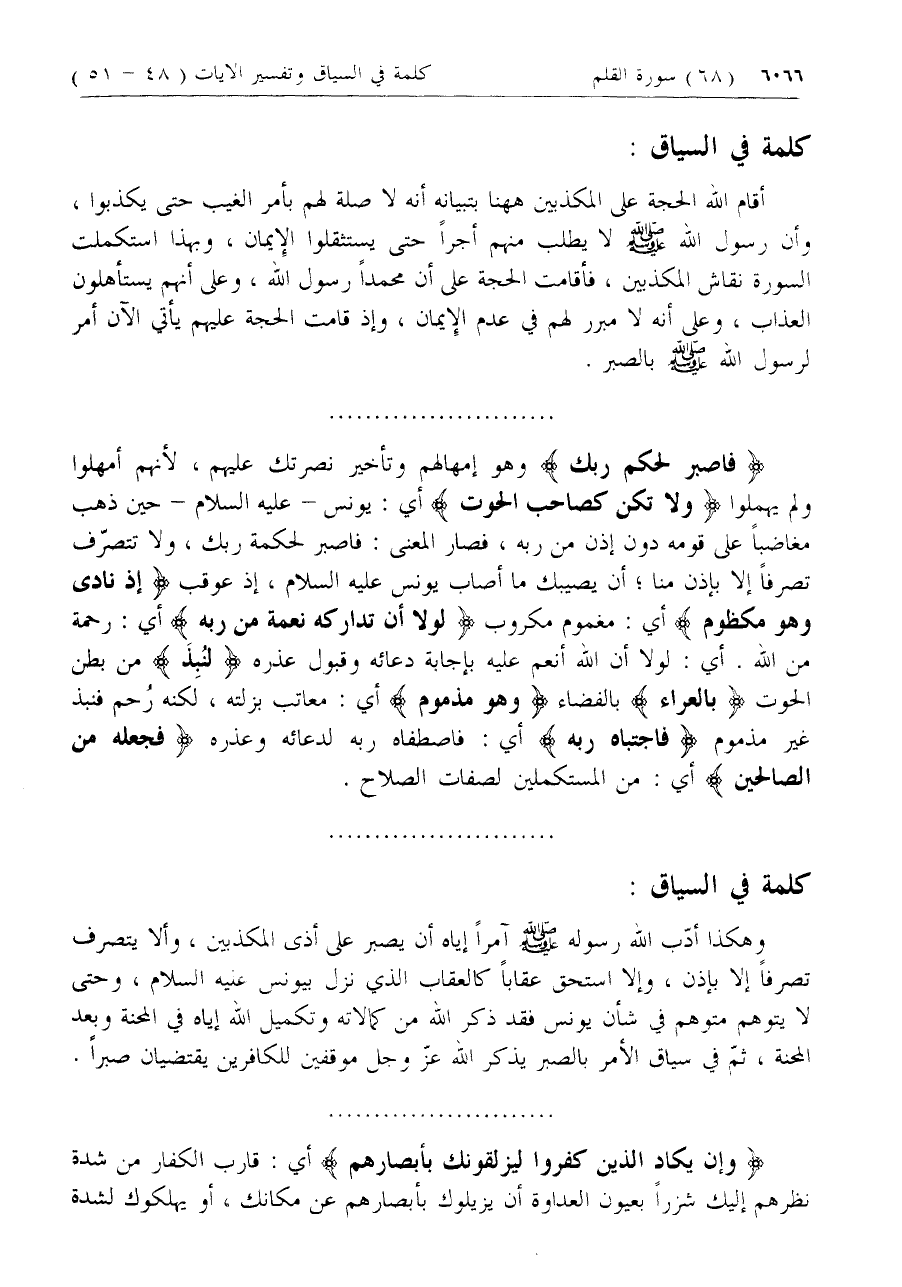 ٦٠٦٦ (٦٨) سورة القلم كلمة في السياق وتفسير الآيات ( ٤٨ – ٥١ )
كلمة في السياق :
أقام الله الحجة على المكذبين ههنا بتبيانه أنه لا صلة لهم بأمر الغيب حتى يكذبوا ،
وأن رسول الله ﷺ لا يطلب منهم أجراً حتى يستثقلوا الإيمان ، وبهذا استكملت
السورة نقاش المكذبين ، فأقامت الحجة على أن محمداً رسول الله ، وعلى أنهم يستأهلون
العذاب ، وعلى أنه لا مبرر لهم في عدم الإيمان ، وإذ قامت الحجة عليهم يأتي الآن أمر
لرسول الله ﷺ بالصبر .
.........................
﴿ فاصبر لحكم ربك ﴾ وهو إمهالهم وتأخير نصرتك عليهم ، لأنهم أمهلوا
ولم يهملوا ﴿ ولا تكن كصاحب الحوت ﴾ أي : يونس – عليه السلام – حين ذهب
مغاضباً على قومه دون إذن من ربه ، فصار المعنى : فاصبر لحكمة ربك ، ولا تتصرّف
تصرفاً إلا بإذن منا ؛ أن يصيبك ما أصاب يونس عليه السلام ، إذ عوقب ﴿ إذ نادى
وهو مكظوم ﴾ أي : مغموم مكروب ﴿ لولا أن تداركه نعمة من ربه ﴾ أي : رحمة
من الله . أي : لولا أن الله أنعم عليه بإجابة دعائه وقبول عذره ﴿ لنُبِذَ ﴾ من بطن
الحوت ﴿ بالعراء ﴾ بالفضاء ﴿ وهو مذموم ﴾ أي : معاتب بزلته ، لكنه رُحم فنبذ
غير مذموم ﴿ فاجتباه ربه ﴾ أي : فاصطفاه ربه لدعائه وعذره ﴿ فجعله من
الصالحين ﴾ أي : من المستكملين لصفات الصلاح .
.........................
كلمة في السياق :
وهكذا أدّب الله رسوله ﷺ آمراً إياه أن يصبر على أذى المكذبين ، وألا يتصرف
تصرفاً إلا بإذن ، وإلا استحق عقاباً كالعقاب الذي نزل بيونس عليه السلام ، وحتى
لا يتوهم متوهم في شأن يونس فقد ذكر الله من كمالاته وتكميل الله إياه في المحنة وبعد
المحنة ، ثمّ في سياق الأمر بالصبر يذكر الله عزّ وجل موقفين للكافرين يقتضيان صبراً .
.........................
﴿ وإن يكاد الذين كفروا ليزلقونك بأبصارهم ﴾ أي : قارب الكفار من شدة
نظرهم إليك شزراً بعيون العداوة أن يزيلوك بأبصارهم عن مكانك ، أو يهلكوك لشدة